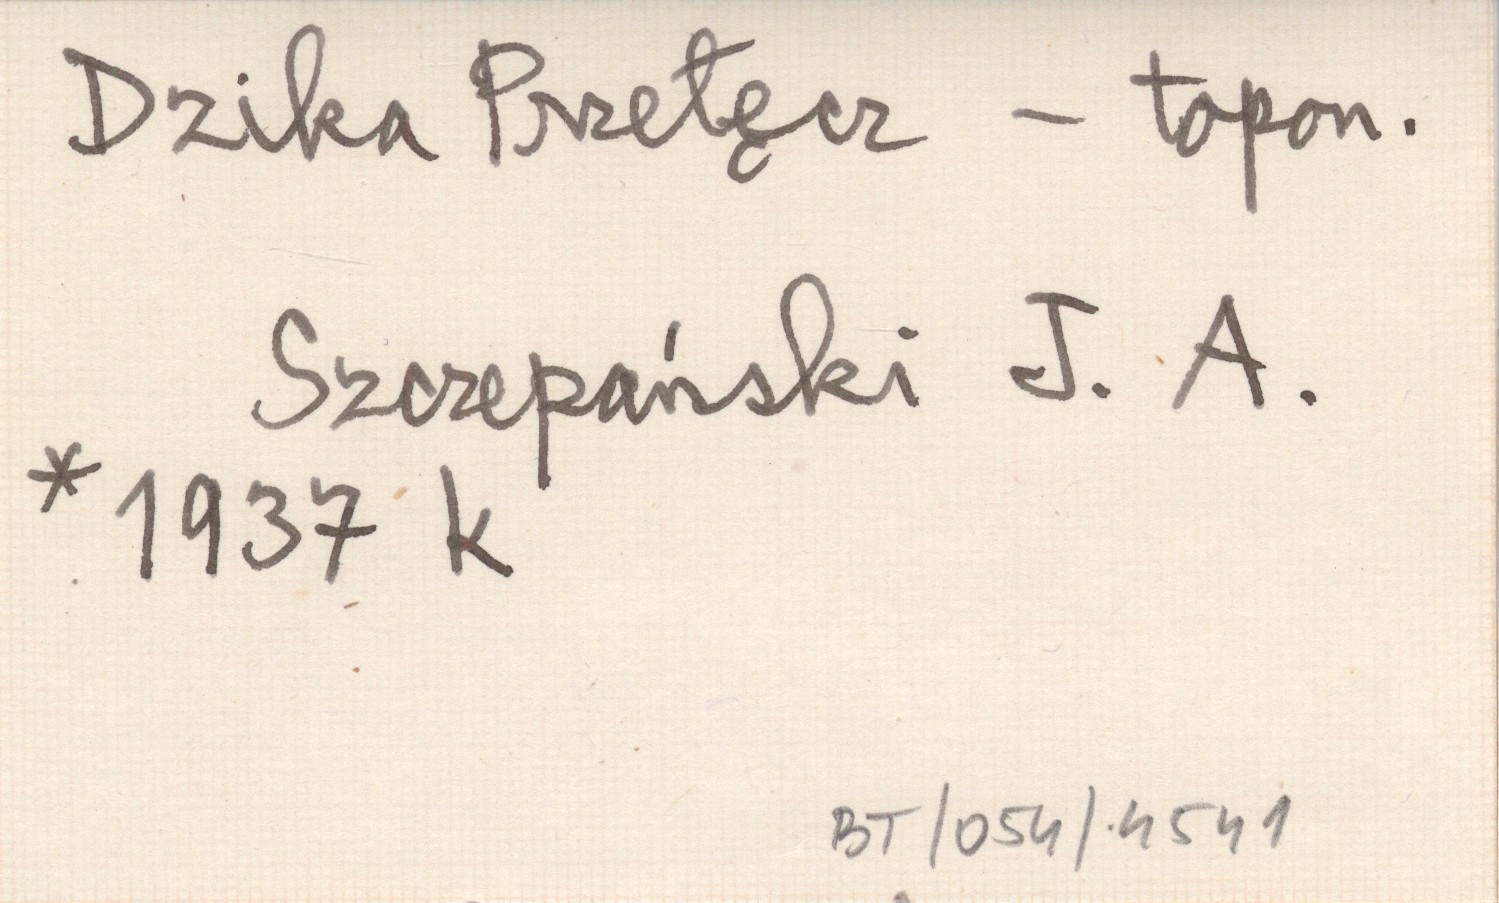 Dzika Przełęcz - topon.
Szczepański J. A.
* 1937 k
BT/054/.4541